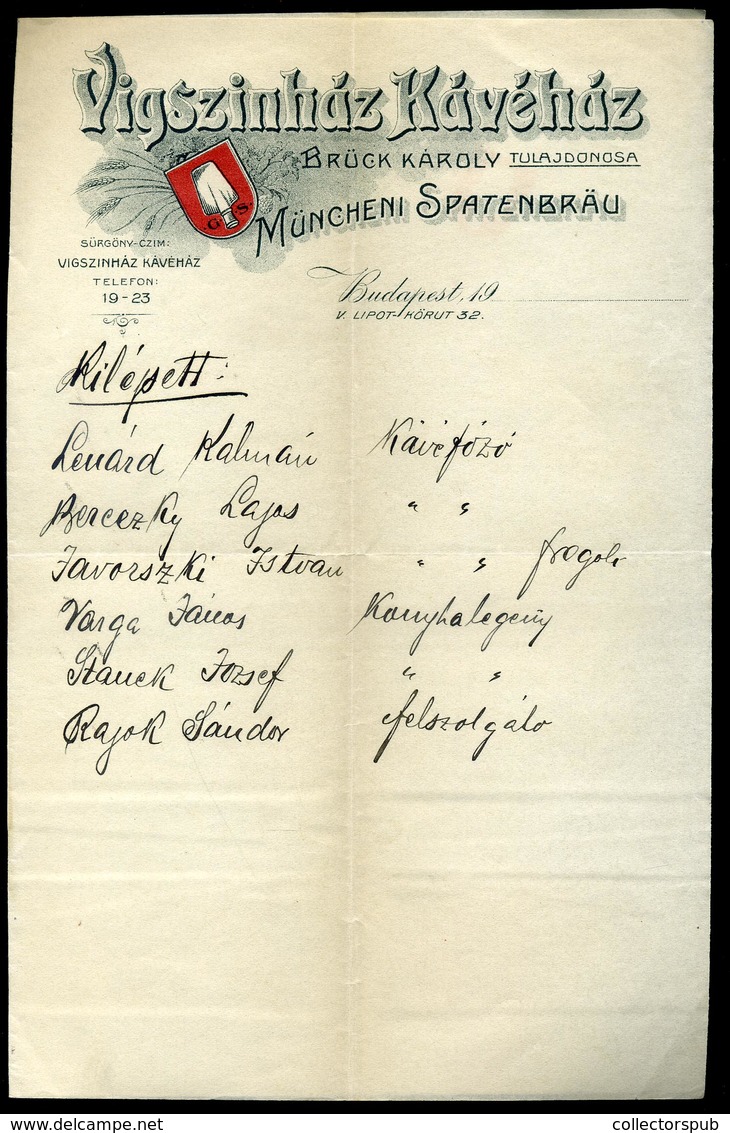 Vigszinház Kávéház
BRÜCK KÁROLY TULAJDONOSA
G S
MÜNCHENI SPATENBRÄU
SÜRGÖNY-CZIM:
VIGSZINHÁZ KÁVÉHÁZ
TELEFON:
19-23
Budapest, 19
V. LIPOT-KÖRUT 32.
Kilépett:
Lenárd Kalmán Kávéfőző
Berecezky Lajos " "
Javorszki Istvan " "
Varga János Konyhalegény
Stanek József " "
Rajok Sándor felszolgáló
www.delcampe.net
collectorspub